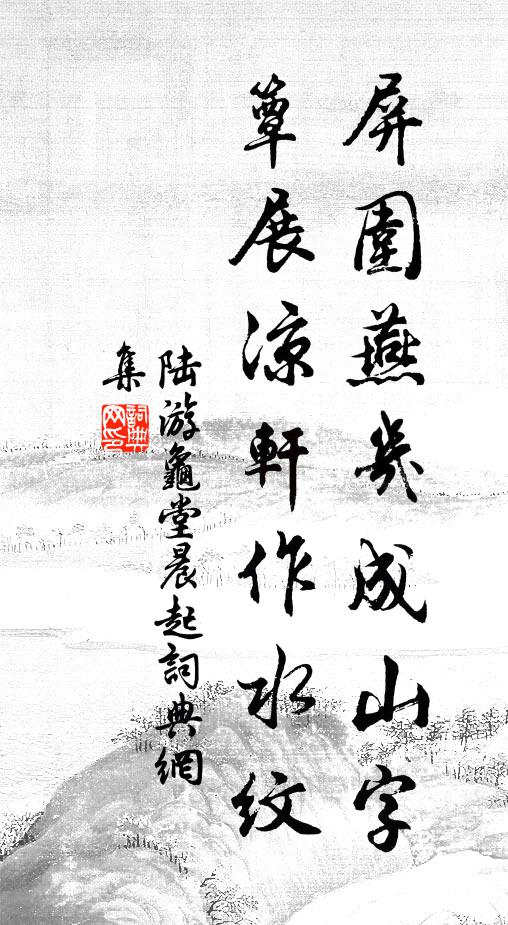 屏圍燕幾成山字
簟展涼軒作水紋
陸游龜堂晨起詞典網
集
詞典网印